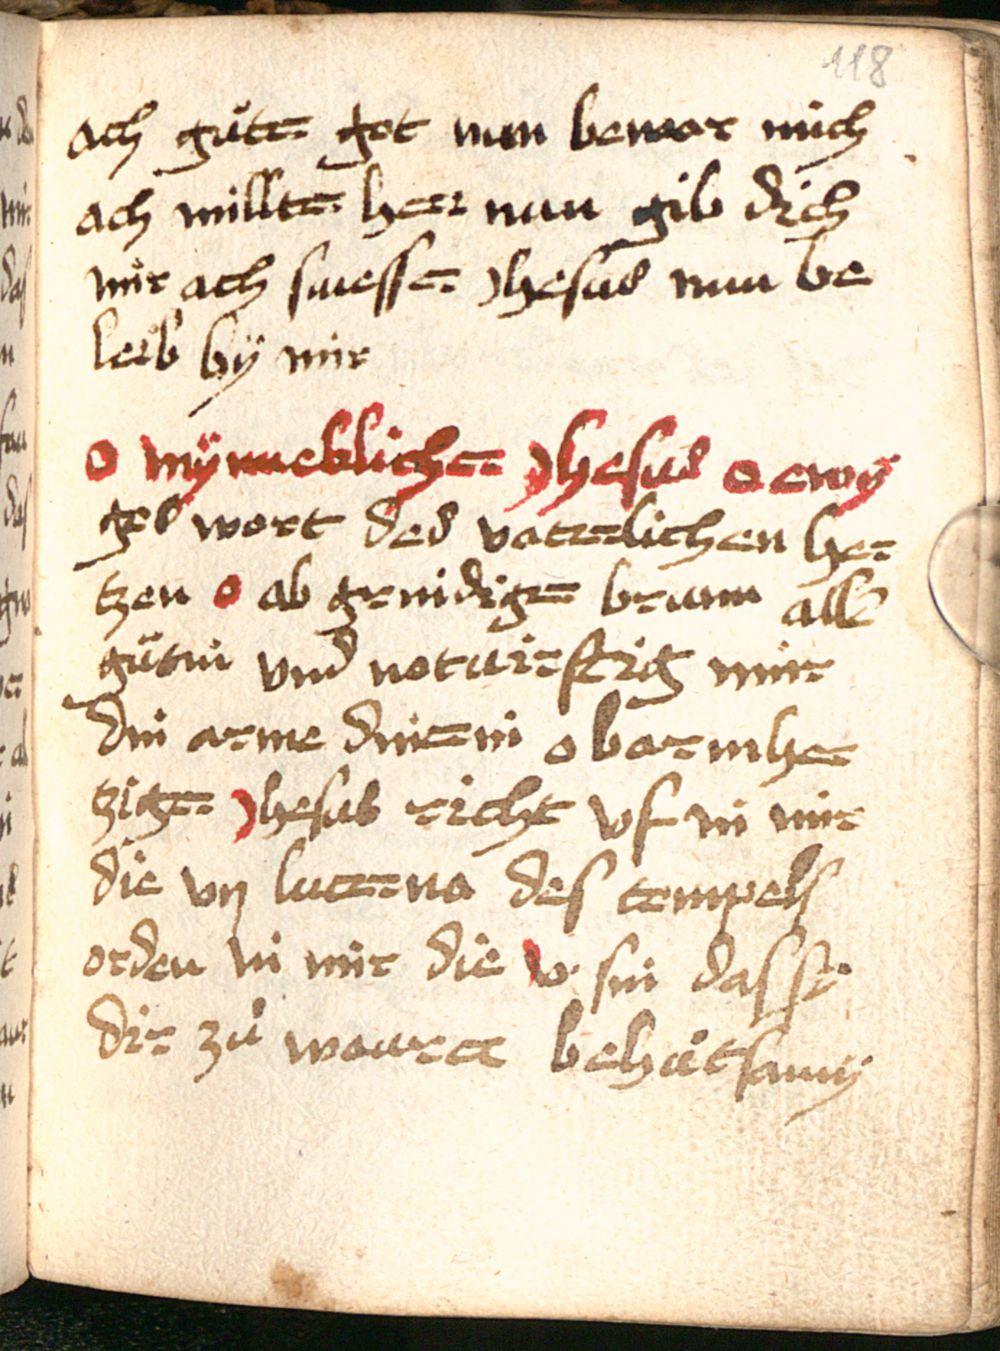 118
ach gůter got nun bewar mich
ach millter herr nun gib dich
mir ach suesser Jhesus nun be
leib bÿ mir
o mÿneklicher Jhesus o ewy
ges wort des vaterlichen her
tzen o ab grundiger brunn aller
gütin vnd notdurftig mir
din arme dinerin o barmher
tziger Jhesus richt vf in mir
die vij lucerna des tempels
orden in mir die v sin das si
dir zů warer behůtsamy